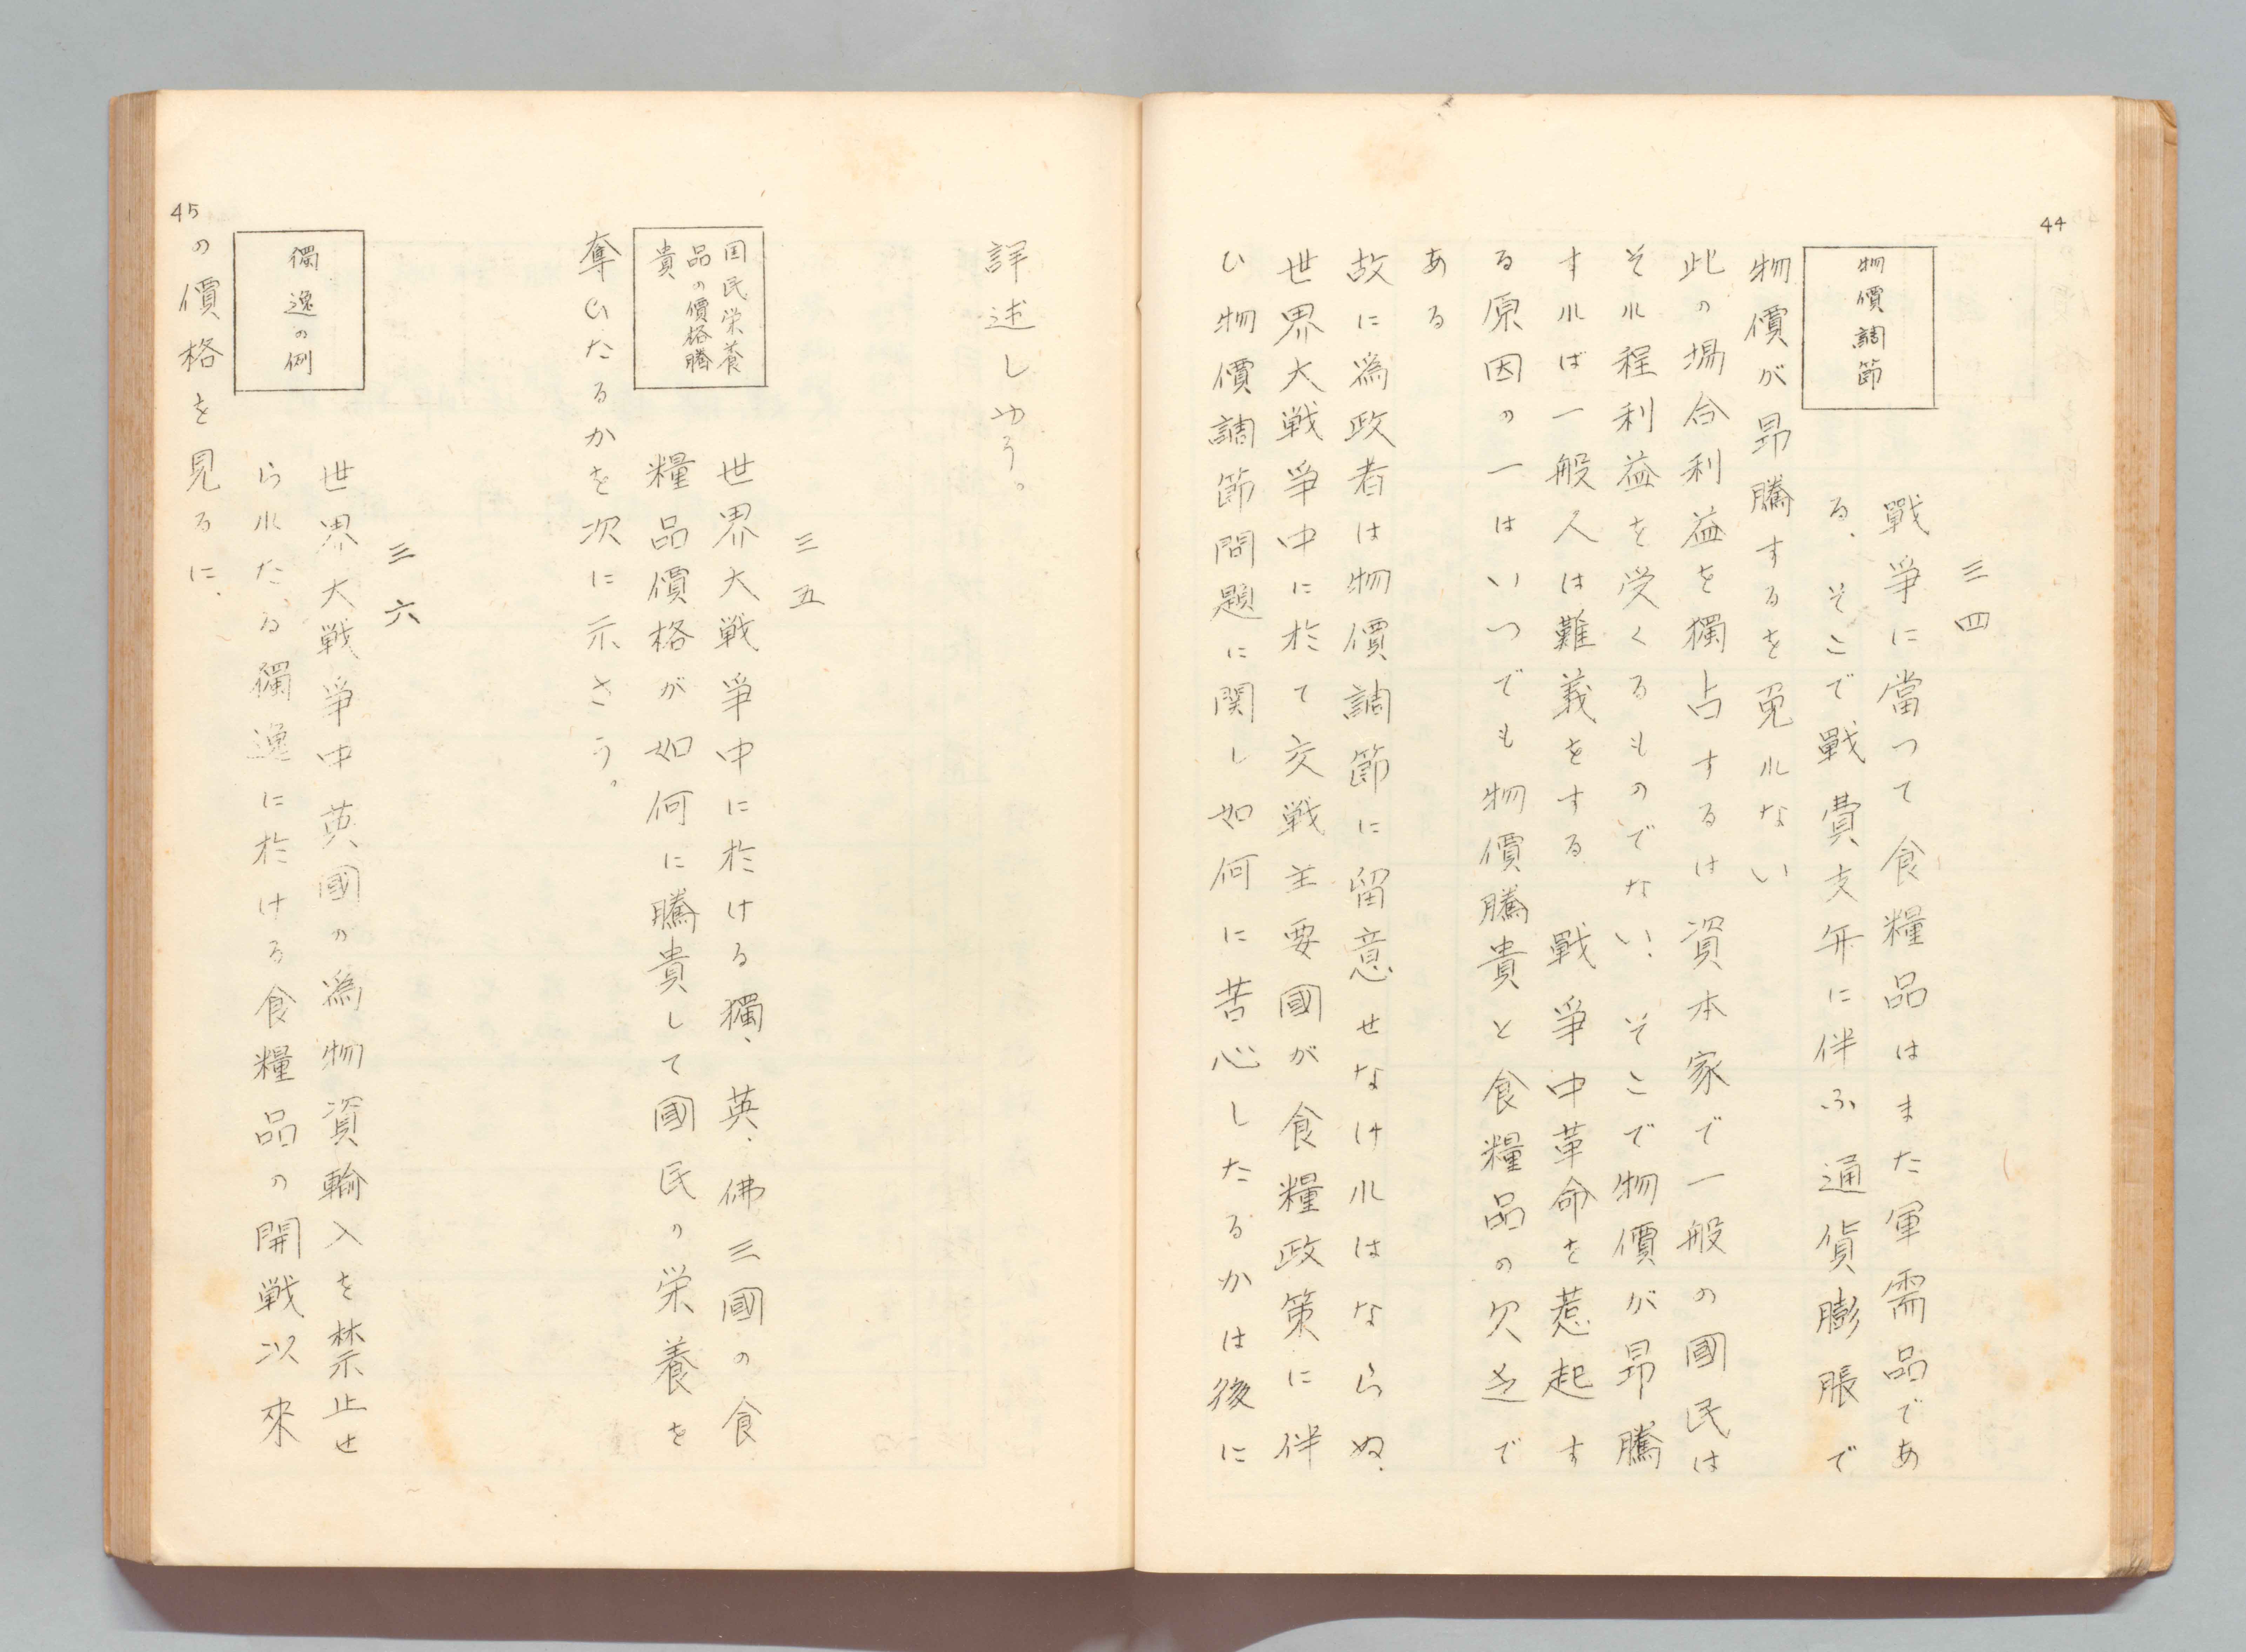 44
三四
物價調節
戰爭に當つて食糧品はまた軍需品であ
る、そこで戰費支弁に伴ふ通貨膨脹で
物價が昻騰するを免れない
此の場合利益を獨占するは資本家で一般の國民は
それ程利益を受くるものでない、そこで物價が昻騰
すれば一般人は難義をする 戰爭中革命を惹起す
る原因の一はいつでも物價騰貴と食糧品の欠乏で
ある
故に爲政者は物價調節に留意せなければならぬ、
世界大戦爭中に於て交戦主要國が食糧政策に伴
ひ物價調節問題に関し如何に苦心したるかは後に
詳述しやう。
三五
国民栄養
品の價格騰
貴
世界大戦爭中に於ける獨、英、佛三國の食
糧品價格が如何に騰貴して國民の栄養を
奪ひたるかを次に示さう。
三六
獨逸の例
世界大戦爭中英國の爲物資輸入を禁止せ
られたる獨逸に於ける食糧品の開戦以來
の價格を見るに、
45